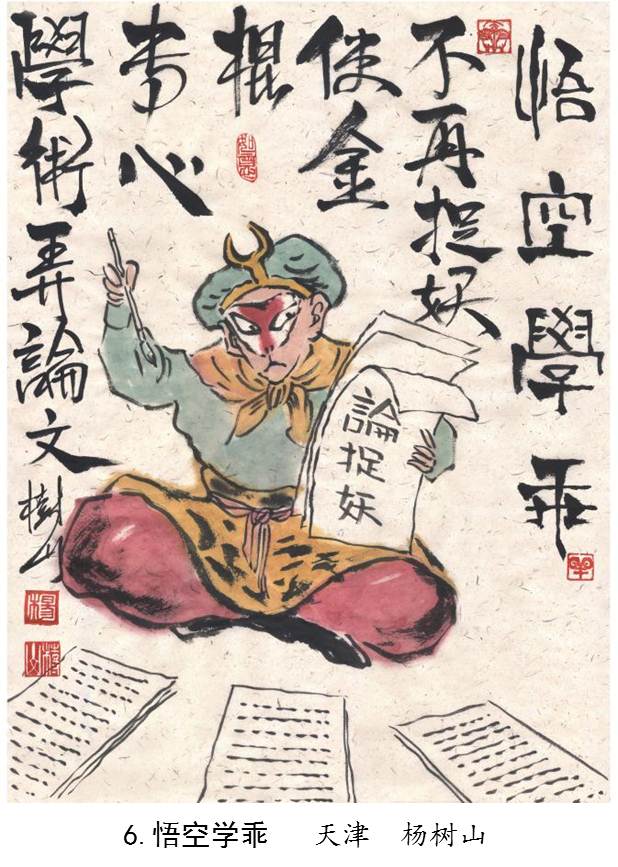 悟空學乖
不再捉妖
使金
棍
专心
學術弄論文
樹山
論捉妖
6.悟空学乖 天津 杨树山